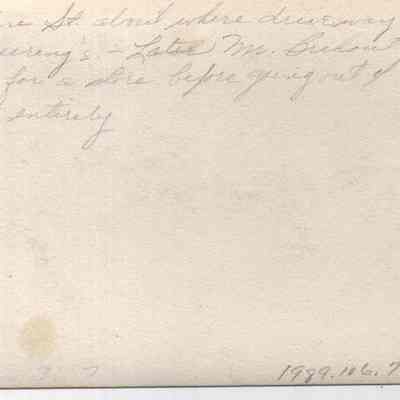 ne St. about where driveway
eering's - Later M.
for a store before going out of
entirely
1989.106.7